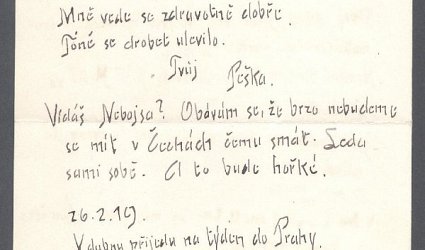 Mně vede se zdravotně dobře.
Tóně se drobet ulevilo.
Tvůj Peška.
Vídáš Nebojsa? Obávám se, že brzo nebudeme
se mít v Čechách čemu smát. Leda
sami sobě. A to bude hořké.
26.2.19.
V dubnu přijedu na týden do Prahy.